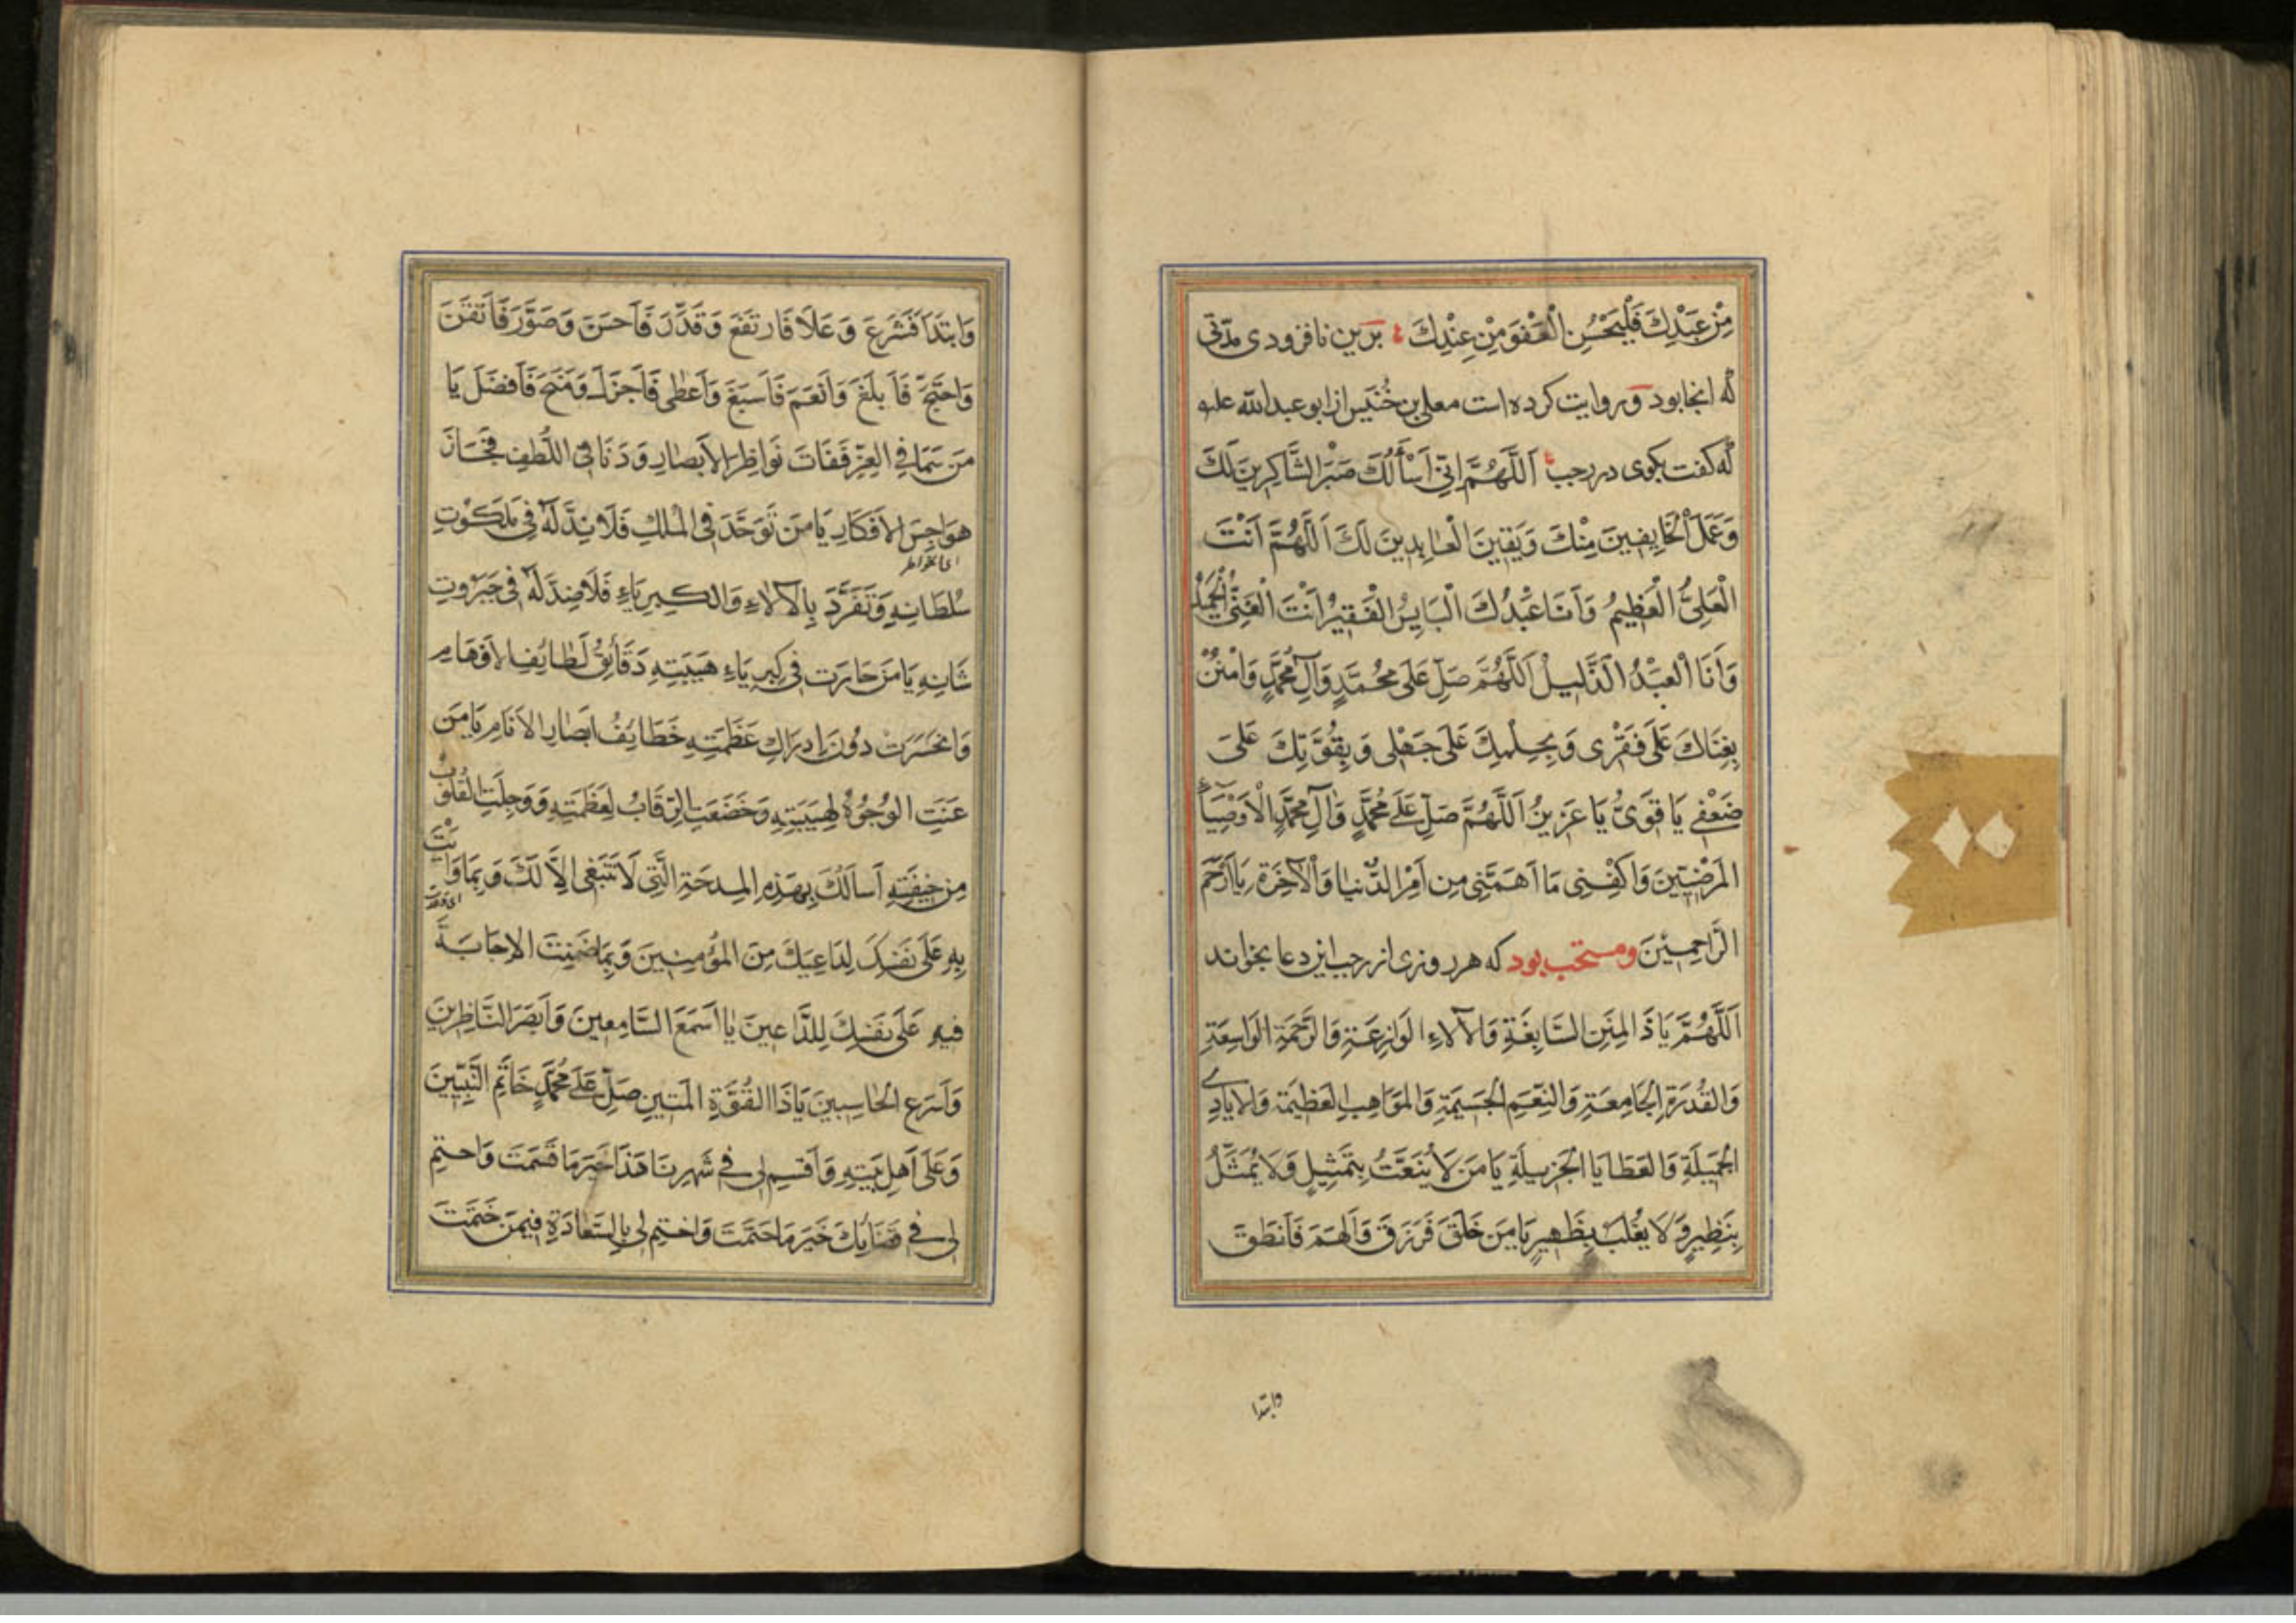 مِنْ عَبْدِكَ فَلْيَحْسُنِ الْعَفْوَ مِنْ عِنْدِكَ برین نافزودی مدّتی
که انجا بود وروایت کرده است معلی بن خُنَیس از ابو عبدالله علیه
که کفت بکوی در رجب اَللَّهُمَّ اِنّی اَسْأَلُكَ صَبْرَ الشَّاکِرِینَ لَكَ
وَعَمَلَ الْخَایِفِینَ مِنْكَ وَیَقِینَ الْعَابِدِینَ لَكَ اَللَّهُمَّ اَنْتَ
الْعَلِیُّ الْعَظِیمُ وَاَنَا عَبْدُكَ الْبَایِسُ الْفَقِیرُ اَنْتَ الْغَنِیُّ الْحَمِیدُ
وَاَنَا الْعَبْدُ الذَّلِیلُ اَللَّهُمَّ صَلِّ عَلَی مُحَمَّدٍ وَآلِ مُحَمَّدٍ وَامْنُنْ
بِغِنَاكَ عَلَی فَقْرِی وَبِحِلْمِكَ عَلَی جَهْلِی وَبِقُوَّتِكَ عَلَی
ضَعْفِی یَا قَوِیُّ یَا عَزِیزُ اَللَّهُمَّ صَلِّ عَلَی مُحَمَّدٍ وَآلِ مُحَمَّدٍ الْاَوْصِیَاءِ
المَرْضِیّینَ وَاکْفِنِی مَا اَهَمَّنِی مِن اَمْرِ الدُّنیَا وَالْآخِرَةِ یَا اَرْحَمَ
الرَّاحِمِیْنَ ومستحب بود که هر روزی از رجب این دعا بخواند
اَللَّهُمَّ یَا ذَا المِنَنِ السَّابِغَةِ وَالآلاءِ الوَازِعَةِ وَالرَّحْمَةِ الوَاسِعَةِ
وَالقُدرَةِ الجَامِعَةِ وَالنِّعَمِ الجَسِیمَةِ وَالمَوَاهِبِ العَظِیمَةِ وَالاَیَادِی
الجَمِیلَةِ وَالعَطَایَا الجَزِیلَةِ یَا مَن لَا یُنعَتُ بِتَمثِیلٍ وَلَا یُمَثَّلُ
بِنَظِیرٍ وَلَا یُغلَبُ بِظَهِیرٍ یَا مَن خَلَقَ فَرَزَقَ وَاَلهَمَ فَاَنطَقَ
وابتدا
وَابتَدَاَ فَشَرَعَ وَعَلَا فَارتَفَعَ وَقَدَّرَ فَاَحسَنَ وَصَوَّرَ فَاَتقَنَ
وَاحتَجَّ فَاَبلَغَ وَاَنعَمَ فَاَسبَغَ وَاَعطَی فَاَجزَلَ وَمَنَحَ فَاَفضَلَ یَا
مَن سَمَا فِی العِزِّ فَفَاتَ نَوَاظِرَ الاَبصَارِ وَدَنَا فِی اللُّطفِ فَجَازَ
هَوَاجِسَ الاَفکَارِ یَا مَن تَوَحَّدَ فِی المُلكِ فَلَا نِدَّ لَهُ فِی مَلَکُوتِ
ای الخواطر
سُلطَانِهِ وَتَفَرَّدَ بِالآلاءِ وَالکِبرِیَاءِ فَلَا ضِدَّ لَهُ فِی جَبَرُوتِ
شَانِهِ یَا مَن حَارَت فِی کِبرِیَاءِ هَیبَتِهِ دَقَائِقُ لَطَائِفِ الاَوهَامِ
وَانحَسَرَت دُونَ اِدرَاكِ عَظَمَتِهِ خَطَائِفُ اَبصَارِ الاَنَامِ یَا مَن
عَنَتِ الوُجُوهُ لِهَیبَتِهِ وَخَضَعَتِ الرِّقَابُ لِعَظَمَتِهِ وَوَجِلَتِ القُلُوبُ
مِن خِیفَتِهِ اَسأَلُكَ بِهَذِهِ المِدحَةِ الَّتِی لَا تَنبَغِی اِلَّا لَكَ وَبِمَا وَاَیْتَ
بِهِ عَلَی نَفسِكَ لِدَاعِیكَ مِنَ المُؤمِنِینَ وَبِمَا ضَمِنتَ الاِجَابَةَ
فِیهِ عَلَی نَفسِكَ لِلدَّاعِینَ یَا اَسمَعَ السَّامِعِینَ وَاَبصَرَ النَّاظِرِینَ
وَاَسرَعَ الحَاسِبِینَ یَا ذَا القُوَّةِ المَتِینِ صَلِّ عَلَی مُحَمَّدٍ خَاتَمِ النَّبِیِّینَ
وَعَلَی اَهلِ بَیتِهِ وَاَقسِم لِی فِی شَهرِنَا هَذَا خَیرَ مَا قَسَمتَ وَاحتِم
لِی فِی قَضَائِكَ خَیرَ مَا حَتَمتَ وَاختِم لِی بِالسَّعَادَةِ فِیمَن خَتَمتَ